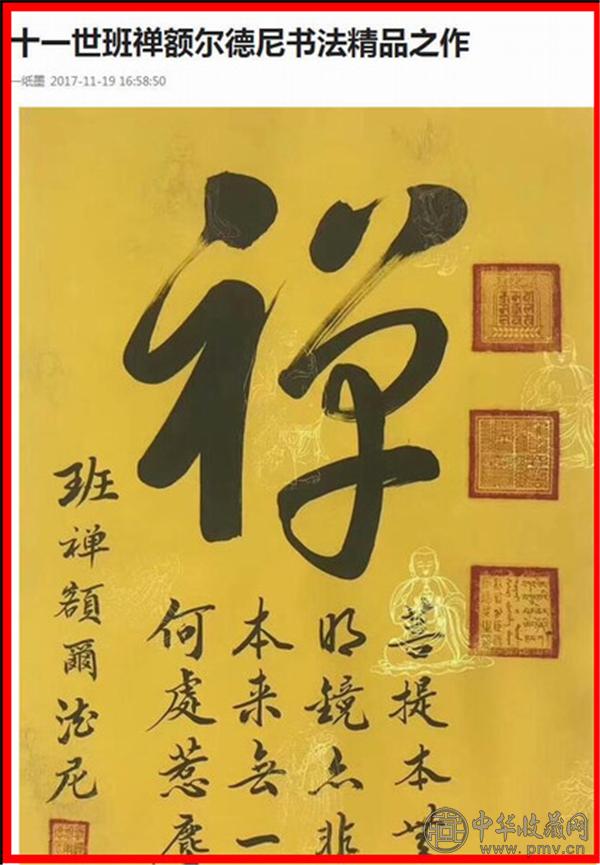 十一世班禅额尔德尼书法精品之作
一纸墨 2017-11-19 16:58:50
禅
菩提本無
明鏡亦非
本来無一
何處惹塵
班禅額爾德尼
中华收藏网
www.pmv.cn